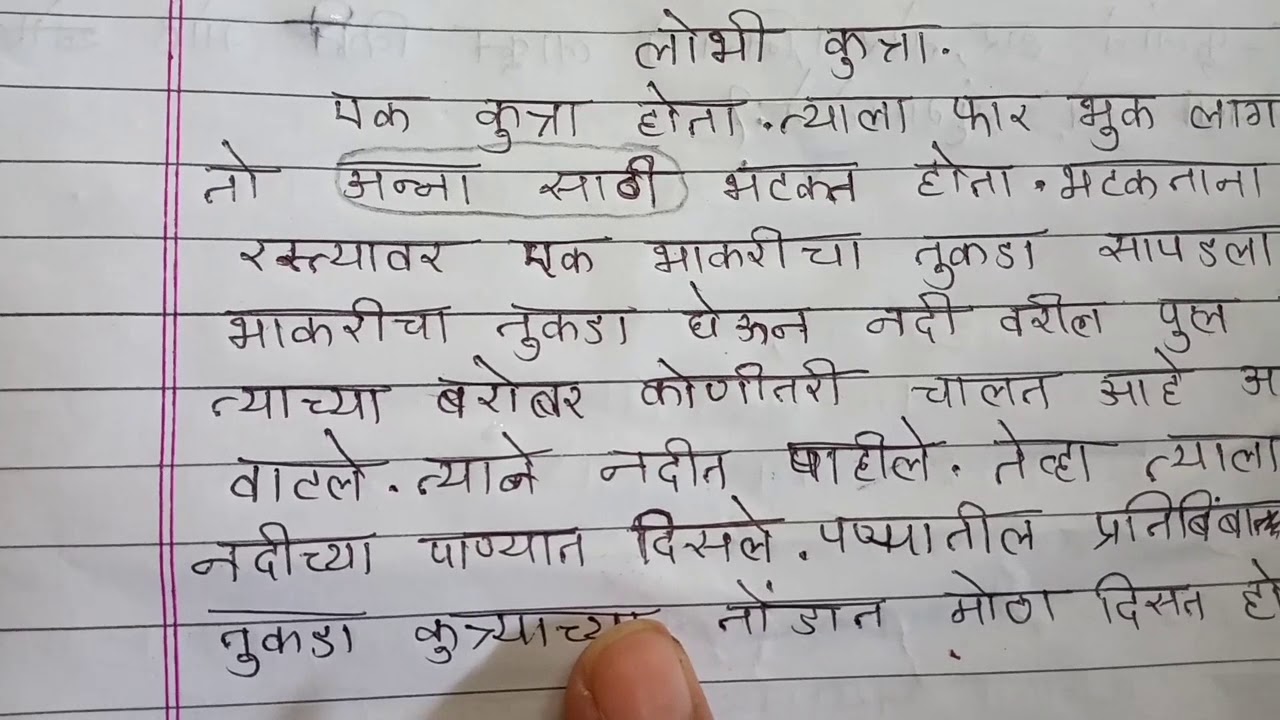 लोभी कुत्रा.
एक कुत्रा होता. त्याला फार भुक लाग
तो अन्ना साठी भटकत होता. भटकताना
रस्त्यावर एक भाकरीचा तुकडा सापडला
भाकरीचा तुकडा घेऊन नदी वरील पुल
त्याच्या बरोबर कोणीतरी चालत आहे अ
वाटले. त्याने नदीत पाहीले. तेव्हा त्याला
नदीच्या पाण्यात दिसले. पण्यातील प्रतिबिंबात
तुकडा कुत्र्याच्या तोंडात मोठा दिसत हो